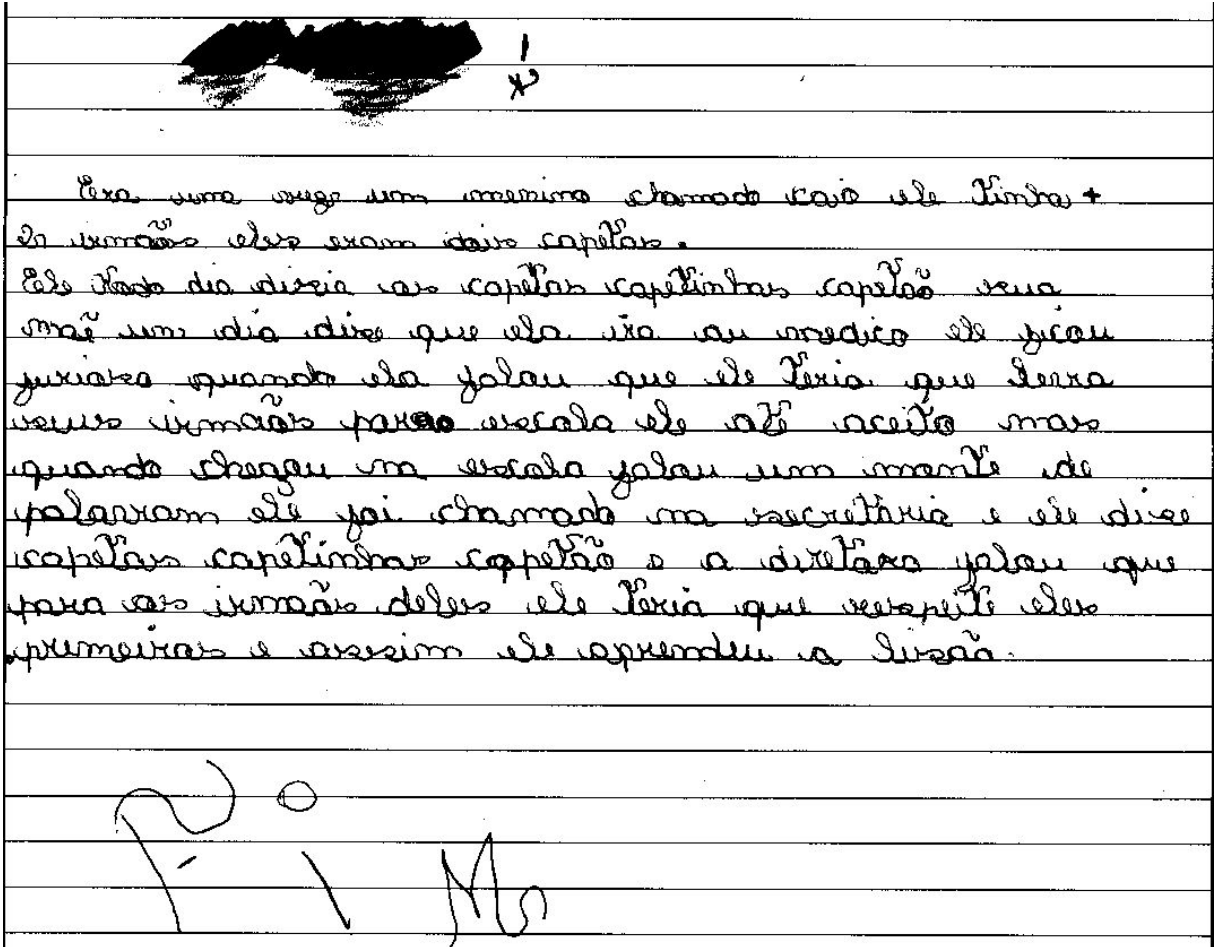 Era uma vez um menino chamado caio ele tinha +
2 irmãos eles eram dois capetas.
Ele todo dia dizia as capetas capetinhas capetão seua
mãe um dia dise que ela ira au medico ele ficou
furioso quando ela falou que ele teria que levra
seuus irmãos para escola ele até aceito mas
quando chegou na escola falou um monte de
palavram ele foi chamado na secretária e ele dise
capetas capetinhas capetão e a diretora falou que
para os irmãos deles ele teria que respeite eles
primeiras e assim ele aprendeu a lisão.
Fim